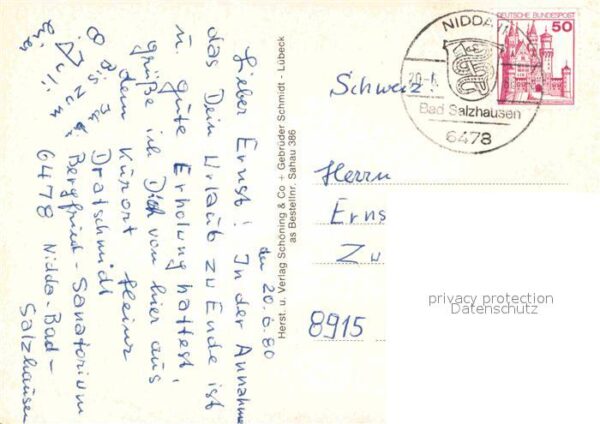 den 20.6.80
Lieber Ernst! In der Annahme
das Dein Urlaub zu Ende ist
u. gute Erholung hattest,
grüße ich Dich von hier aus
dem Kurort Heinz
Dratschmidt
Bergfried-Sanatorium
6478 Nidda-Bad-
Salzhausen
Herst. u. Verlag Schöning & Co + Gebrüder Schmidt - Lübeck
as Bestellnr. Sahau 386
NIDDA
20.-6.
Bad Salzhausen
6478
DEUTSCHE BUNDESPOST
50
Schweiz!
Herrn
Erns
Zu
8915
privacy protection
Datenschutz